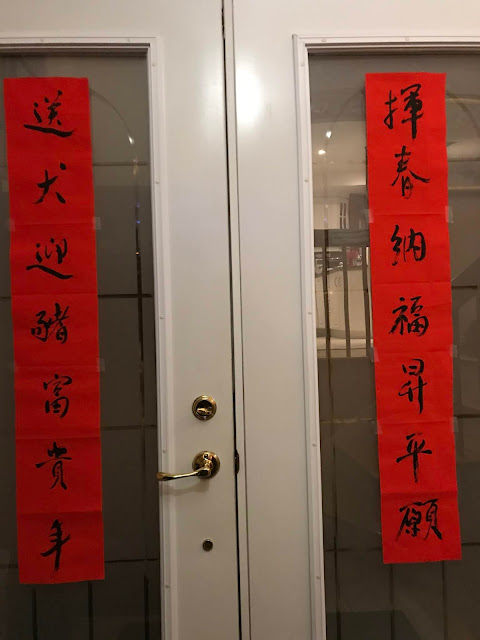 揮春納福昇平願
送犬迎豬富貴年